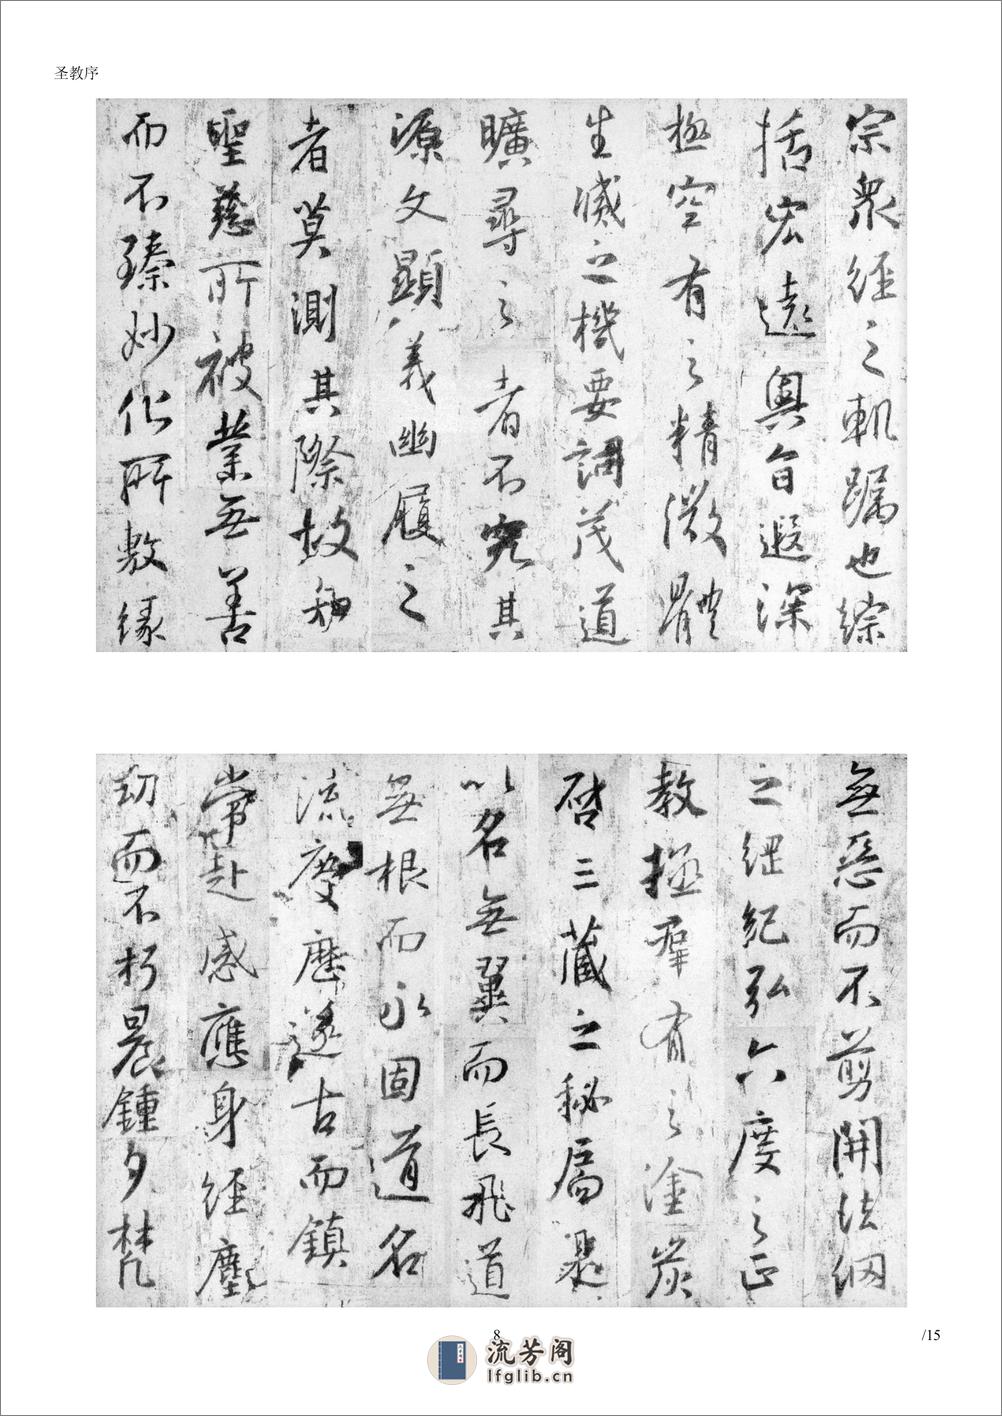 圣教序
宗衆經之軌躅也綜
括宏遠奧旨遐深
極空有之精微體
生滅之機要詞茂道
曠尋之者不究其
源文顯義幽履之
者莫測其際故知
聖慈所被業無善
而不臻妙化所敷緣
無惡而不剪開法網
之綱紀弘六度之正
教拯群有之塗炭
啓三藏之秘扃是
以名無翼而長飛道
無根而永固道名
流慶歷遂古而鎮
常赴感應身經塵
劫而不朽晨鍾夕梵
8
/15
流芳阁
lfglib.cn